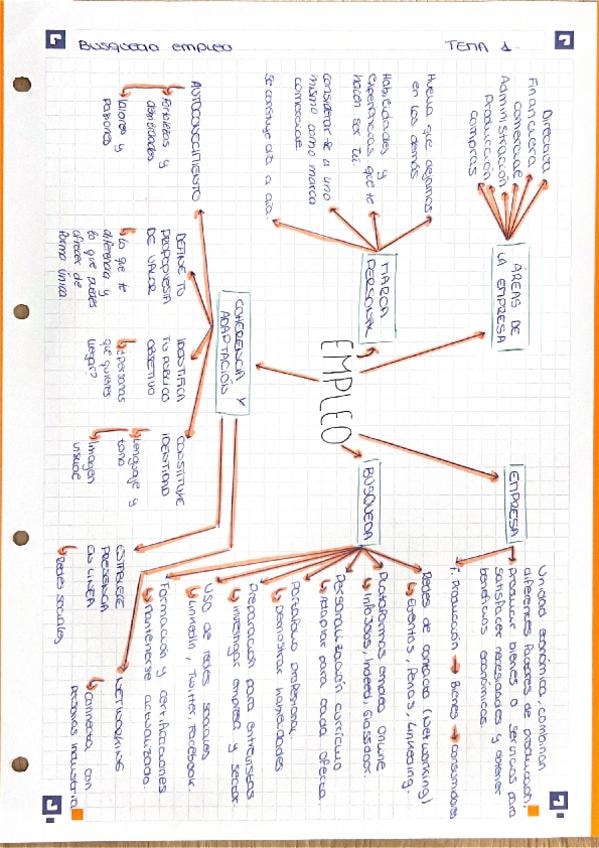 TEMA 1
BÚSQUEDA EMPLEO
EMPLEO
ÁREAS DE
LA EMPRESA
Directiva
Financiera
Comercial
Administración
Producción
Compras
MARCA
PERSONAL
Huella que dejamos
en los demás
Habilidades y
experiencias que te
hacen ser tú.
Considerar-se a uno
mismo como marca
comercial
Se construye día a día.
EMPRESA
Unidad económica, combinan
diferentes factores de producción.
Producir bienes o servicios para
satisfacer necesidades y obtener
beneficios económicos.
F. Producción → Bienes → consumidores
BÚSQUEDA
Redes de contacto (Networking)
Eventos, Ferias, Linkeding.
Plataformas empleo online
InfoJobs, Indeed, Glassdoor.
Personalización currículo
Adaptar para cada oferta.
Portafolio profesional.
Demostrar habilidades
Preparación para entrevistas
Investigar empresa y sector.
Uso de redes sociales
Linkedin, Twitter, Facebook.
Formación y certificaciones
Mantenerse actualizado.
COHERENCIA Y
ADAPTACIÓN
AUTOCONOCIMIENTO
Fortalezas y
debilidades
Valores y
pasiones
DEFINE TU
PROPUESTA
DE VALOR
Lo que te
diferencia y
lo que puedes
ofrecer de
forma única
IDENTIFICA
TU PÚBLICO
OBJETIVO
¿personas
que quieres
llegar?
CONSTITUYE
IDENTIDAD
Lenguaje y
tono
Imagen
visual
ESTABLECE
PRESENCIA
EN LÍNEA
Redes sociales
NETWORKING
Connecta con
personas industria